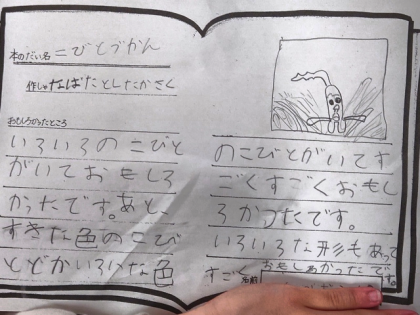 本のだい名 こびとづかん
作しゃ なばたとしたかさく
おもしろかったところ
いろいろのこびと
がいておもしろ
かったです。あと、
すきな色のこびび
とどかいろいな色
のこびとがいてす
ごくすごくおもし
ろかったです。
いろいろな形もあって
すごく おもしろかったです。
名前